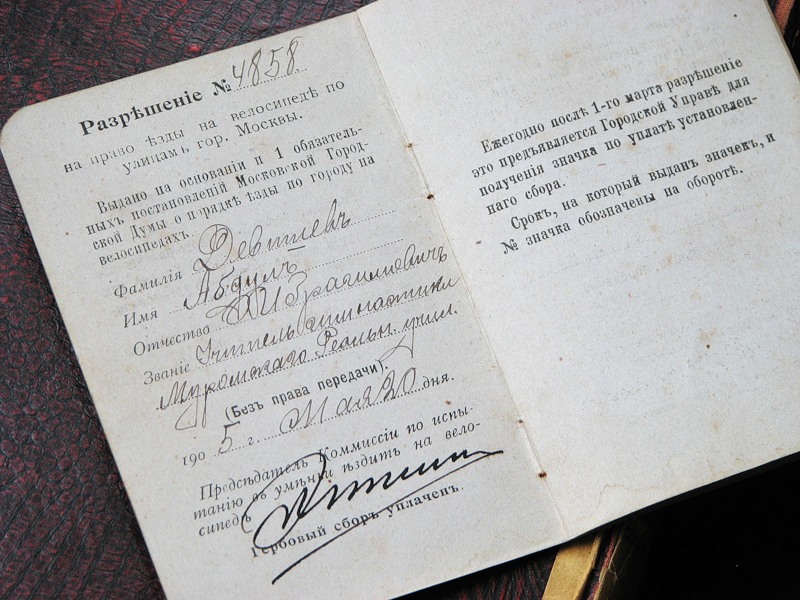 Разрѣшеніе № 4858.
на право ѣзды на велосипедѣ по
улицамъ гор. Москвы.
Выдано на основаніи п 1 обязатель-
ныхъ постановленій Московской Город-
ской Думы о порядкѣ ѣзды по городу на
велосипедахъ.
Фамилія Девишевъ
Имя Абдулъ
Отчество Ибрагимовичъ
Званіе Учитель гимнастики
Муромскаго Реальн. учил.
(Безъ права передачи).
1905 г. Мая 20 дня.
Предсѣдатель Коммиссіи по испы-
танію въ умѣніи ѣздить на вело-
сипедѣ
Гербовый сборъ уплаченъ.
Ежегодно послѣ 1-го марта разрѣшеніе
это предъявляется Городской Управѣ для
полученія значка по уплатѣ установлен-
наго сбора.
Срокъ, на который выданъ значекъ, и
№ значка обозначены на оборотѣ.